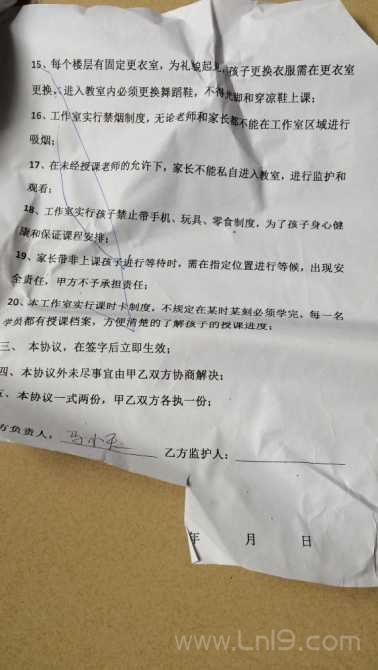 15、每个楼层有固定更衣室，为礼貌起见，孩子更换衣服需在更衣室
更换，进入教室内必须更换舞蹈鞋，不得光脚和穿凉鞋上课；
16、工作室实行禁烟制度，无论老师和家长都不能在工作室区域进行
吸烟；
17、在未经授课老师的允许下，家长不能私自进入教室，进行监护和
观看；
18、工作室实行孩子禁止带手机、玩具、零食制度，为了孩子身心健
康和保证课程安排；
19、家长带非上课孩子进行等待时，需在指定位置进行等候，出现安
全责任，甲方不予承担责任；
20、本工作室实行课时卡制度，不规定在某时某刻必须学完，每一名
学员都有授课档案，方便清楚的了解孩子的授课进度；
三、 本协议，在签字后立即生效；
四、本协议外未尽事宜由甲乙双方协商解决；
五、本协议一式两份，甲乙双方各执一份；
方负责人： 乙方监护人：
年 月 日
www.Lnl9.com